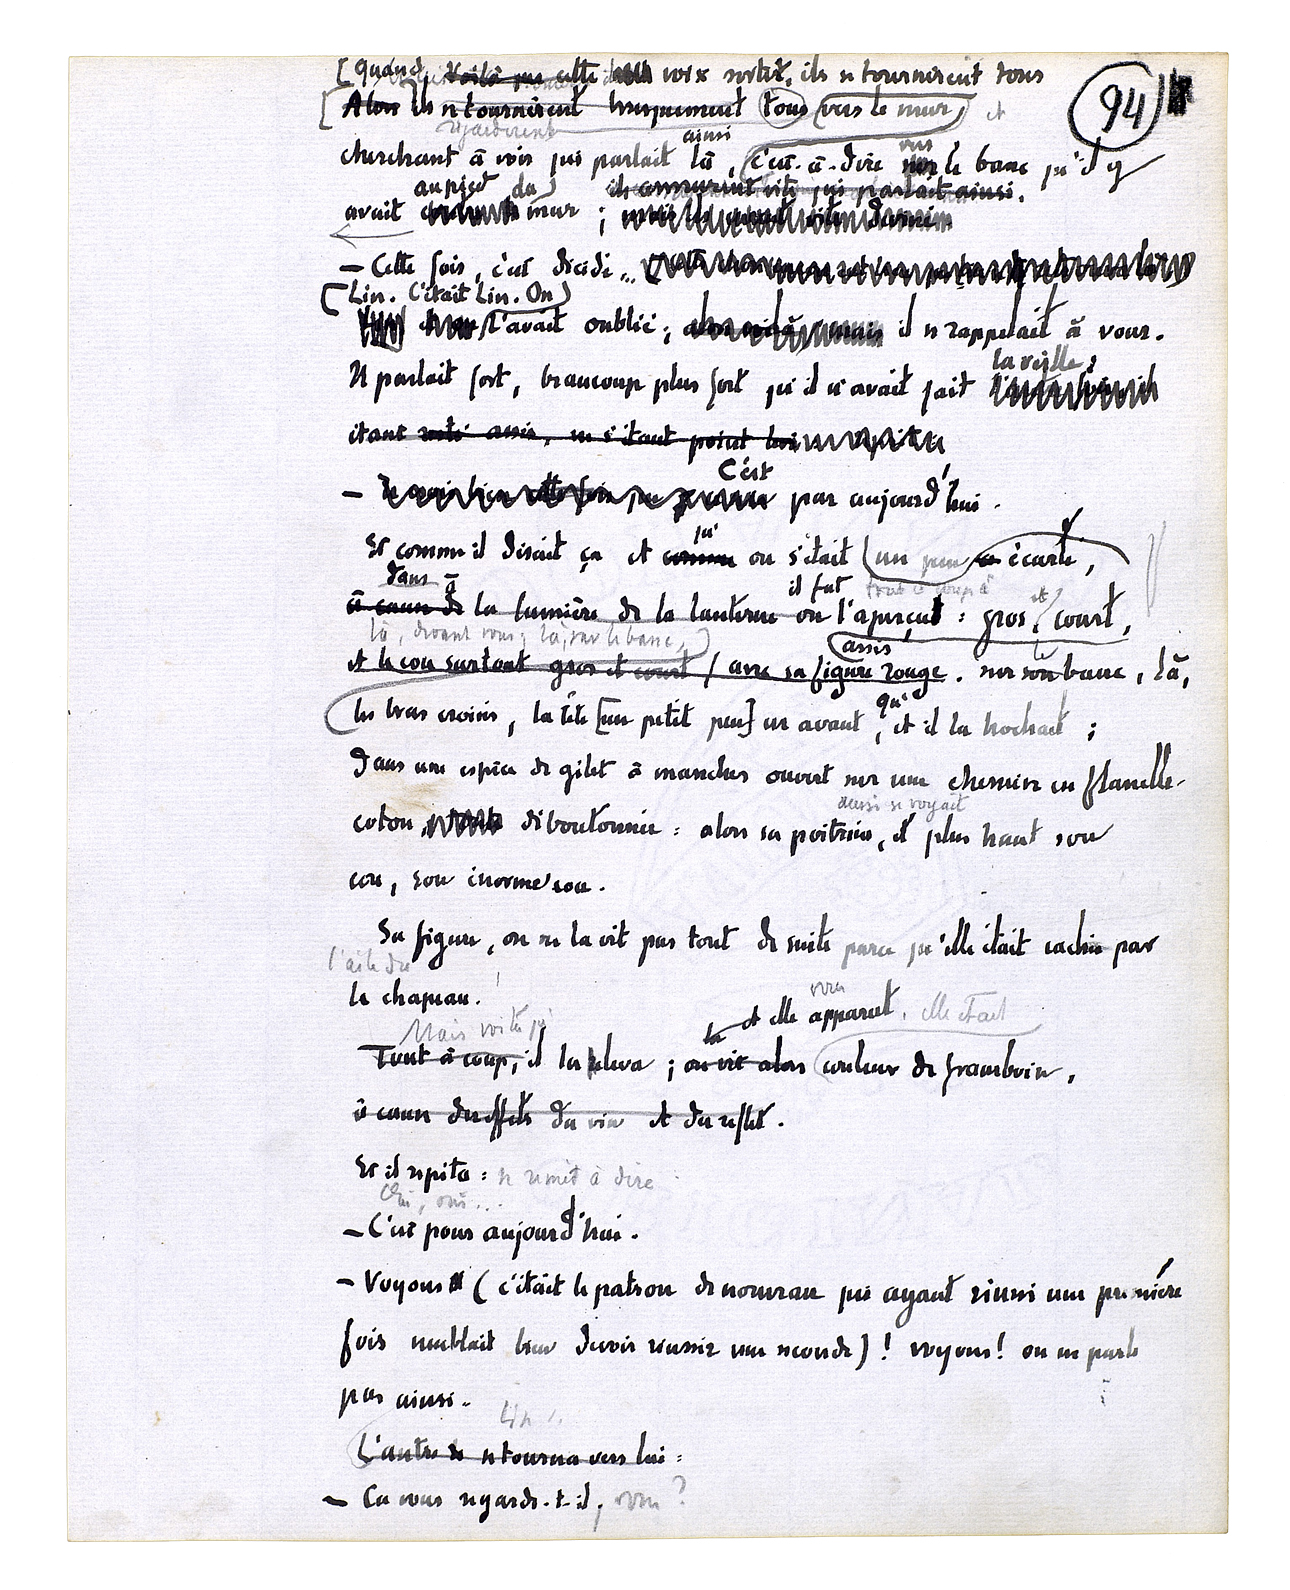 94
[Quand Voilà que cette voix sortit, ils se tournèrent tous
[Alors ils se tournèrent brusquement tous (vers le mur) et
regardèrent
ainsi vers
cherchant à voir qui parlait là, c'est-à-dire sur le banc qu'il y
au pied du ils comprirent vite qui parlait ainsi.
avait mur ;
— Cette fois, c'est décidé...
Lin. C'était Lin. On
l'avait oublié ; il se rappelait à vous.
la veille ;
Il parlait fort, beaucoup plus fort qu'il n'avait fait
étant resté assis, ne s'étant point
C'est
— par aujourd'hui.
qu'
Et comme il disait ça et comme on s'était (un peu écarté,
dans à il fut tout à coup à
à cause de la lumière de la lanterne on l'aperçut : gros, et court,
là, devant vous ; là, sur le banc,
assis le
et le cou surtout gros et court / avec sa figure rouge. sur son banc, là,
qu'
les bras croisés, la tête [un petit peu] en avant, et il la hochait ;
dans une espèce de gilet à manches ouvert sur une chemise en flanelle-
aussi se voyait
coton, déboutonnée : alors sa poitrine, et plus haut son
cou, son énorme cou.
Sa figure, on ne la vit pas tout de suite parce qu'elle était cachée par
l'aile du
le chapeau.
vous
et elle apparut, elle était
Mais voilà qu' la
Tout à coup, il les releva ; on vit alors couleur de framboise,
à cause des effets du vin et du reflet.
Et il répéta : se remit à dire
Oui, oui...
— C'est pour aujourd'hui.
— Voyons (c'était le patron de nouveau qui ayant réussi une première
fois semblait bien devoir réussir une seconde) ! voyons ! on ne parle
pas ainsi.
Lin
L'autre se tourna vers lui :
— Ça vous regarde-t-il, vous ?